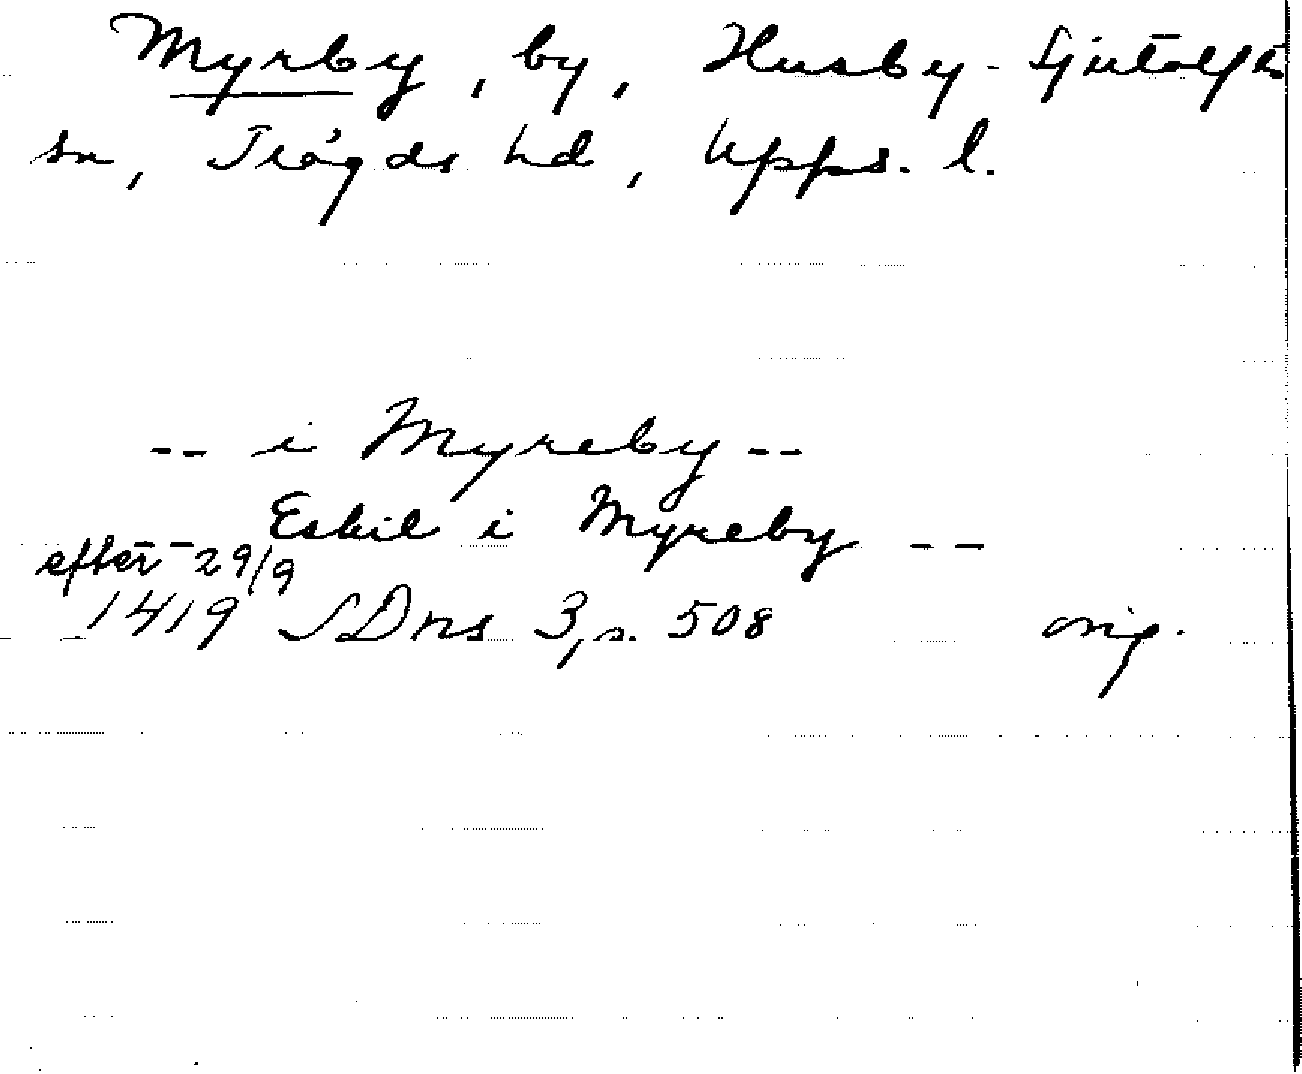 Myrby, by, Husby-Sjutolfts
sn, Trögds hd, Upps. l.
-- i Myreby --
Eskil i Myreby --
efter 29/9
1419 SDns 3, s. 508 orig.